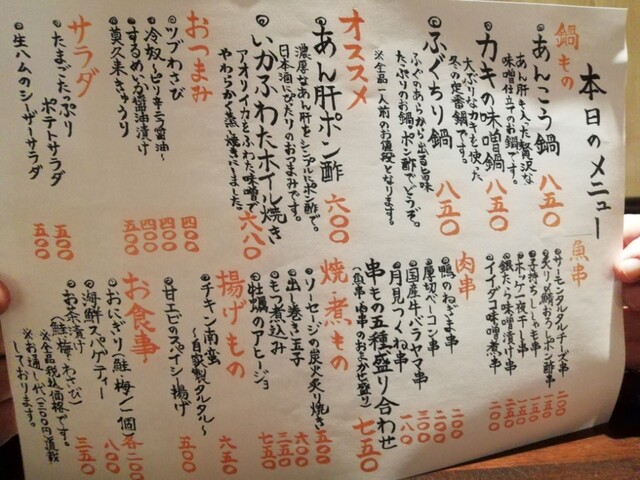 本日のメニュー
鍋もの
あんこう鍋 八五〇
あん肝も入った贅沢な
味噌仕立てのお鍋です。
カキの味噌鍋 八五〇
大ぶりなカキを使った
冬の定番鍋です。
ふぐちり鍋 八五〇
ふぐのあらから出る旨味
たっぷりのお鍋。ポン酢でどうぞ。
※全品一人前のお値段となります。
オススメ
あん肝ポン酢 六〇〇
濃厚なあん肝をシンプルにポン酢で。
日本酒にぴたりのおつまみです。
いかふわたホイル焼き 六八〇
アオリイカをふわた味噌で
やわらかく蒸し焼きにしました
おつまみ
ツブわさび 四〇〇
冷奴〜ピリ辛ラー醤油〜 四〇〇
するめいか醤油漬け 四〇〇
真久来きゅうり 五〇〇
サラダ
たまごたっぷり
ポテトサラダ 五〇〇
生ハムのシーザーサラダ 五〇〇
魚串
サーモンタルタルチーズ串 二〇〇
炙り〆鯖おろしポン酢串 一五〇
子持ちししゃも串 一五〇
ホッケ一夜干し串 一五〇
銀だら味噌漬け串 二五〇
イイダコ味噌煮串 二〇〇
肉串
鴨のねぎま串 二〇〇
厚切ベーコン串 二〇〇
国産牛バラヤマ串 三〇〇
月見つくね串 一八〇
串もの五種盛り合わせ 七五〇
(魚串・肉串のおまかせ盛り)
焼・煮もの
ソーセージの炭火炙り焼き 五〇〇
出し巻き玉子 六〇〇
もつ煮込み 三五〇
牡蠣のアヒージョ 七五〇
揚げもの
チキン南蛮 六五〇
〜自家製タルタル〜
甘エビのスパイシー揚げ 五〇〇
お食事
おにぎり(鮭/梅/一個) 各二〇〇
海鮮スパゲティー 八〇〇
お茶漬け 三五〇
(鮭・梅・わさび)
※全品税抜価格です。
※お通し代(三〇〇円)頂戴
しております。